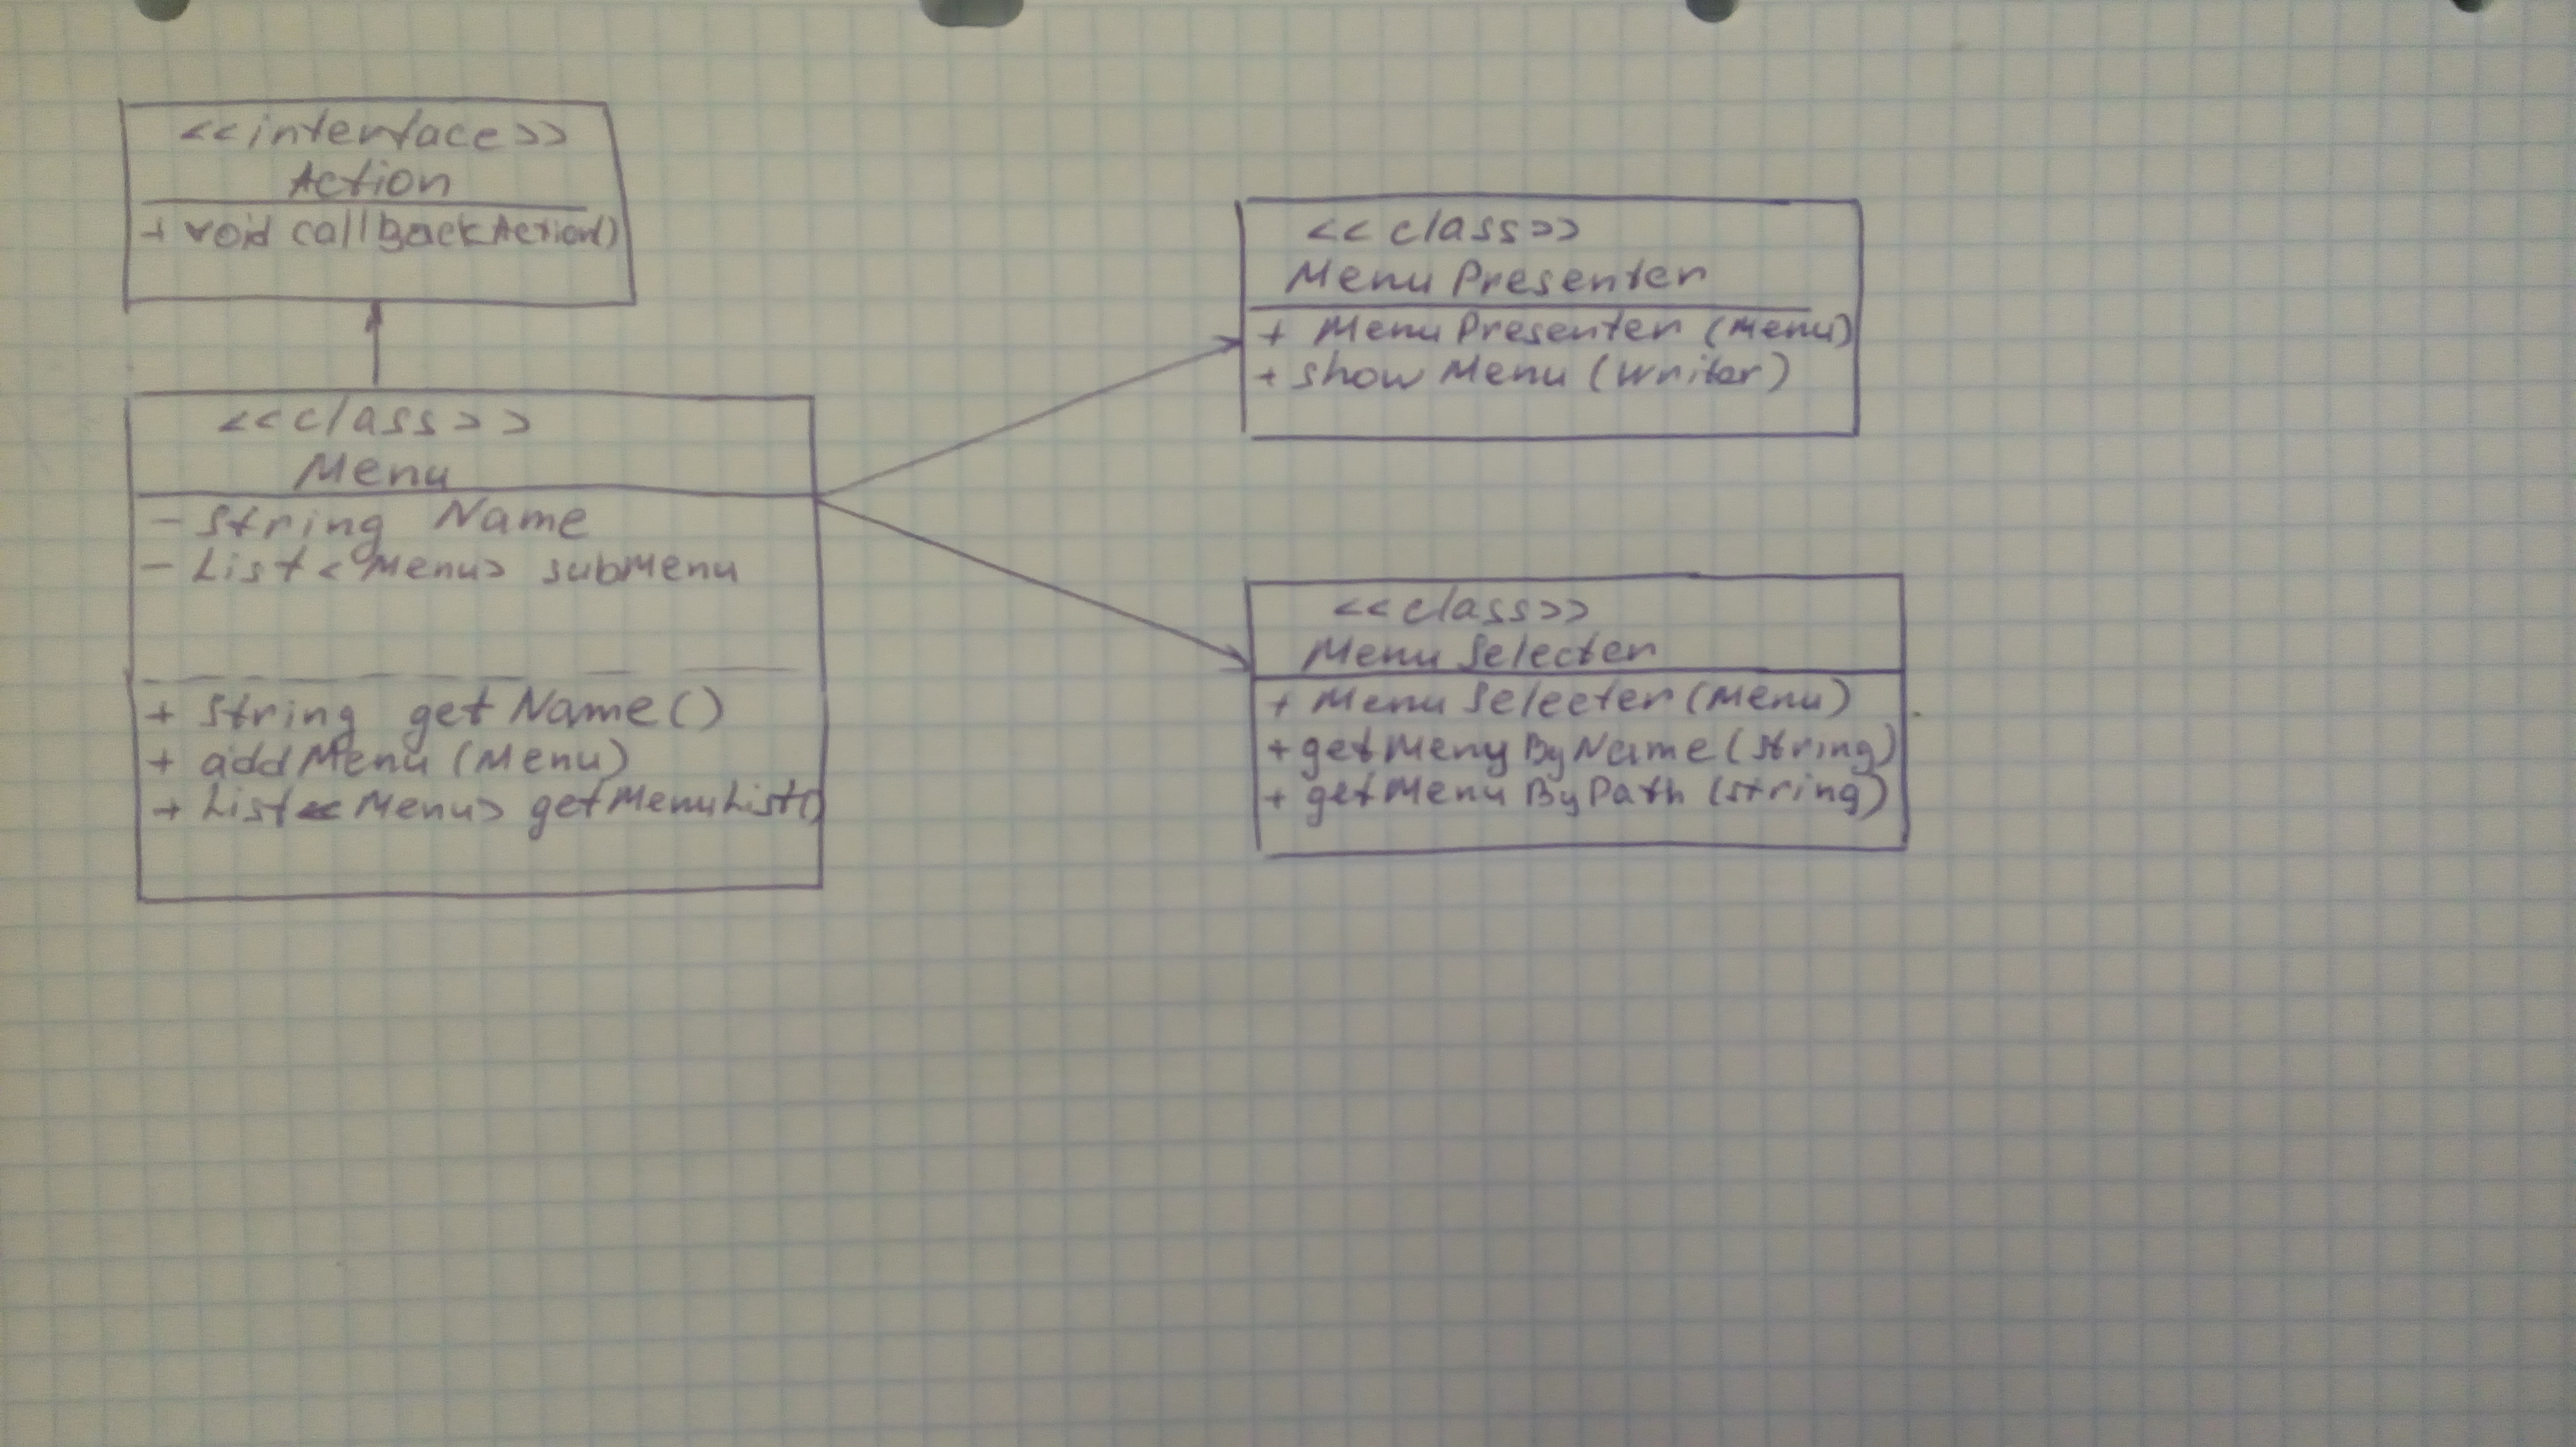 <<interface>>
Action
+ void callBackAction()
<<class>>
Menu
- String Name
- List<Menu> subMenu
+ String getName()
+ addMenu (Menu)
+ List<Menu> getMenuList()
<<class>>
Menu Presenter
+ Menu Presenter (Menu)
+ show Menu (Writer)
<<class>>
Menu Selecter
+ Menu Selecter (Menu)
+ getMeny ByName (String)
+ getMenu ByPath (String)